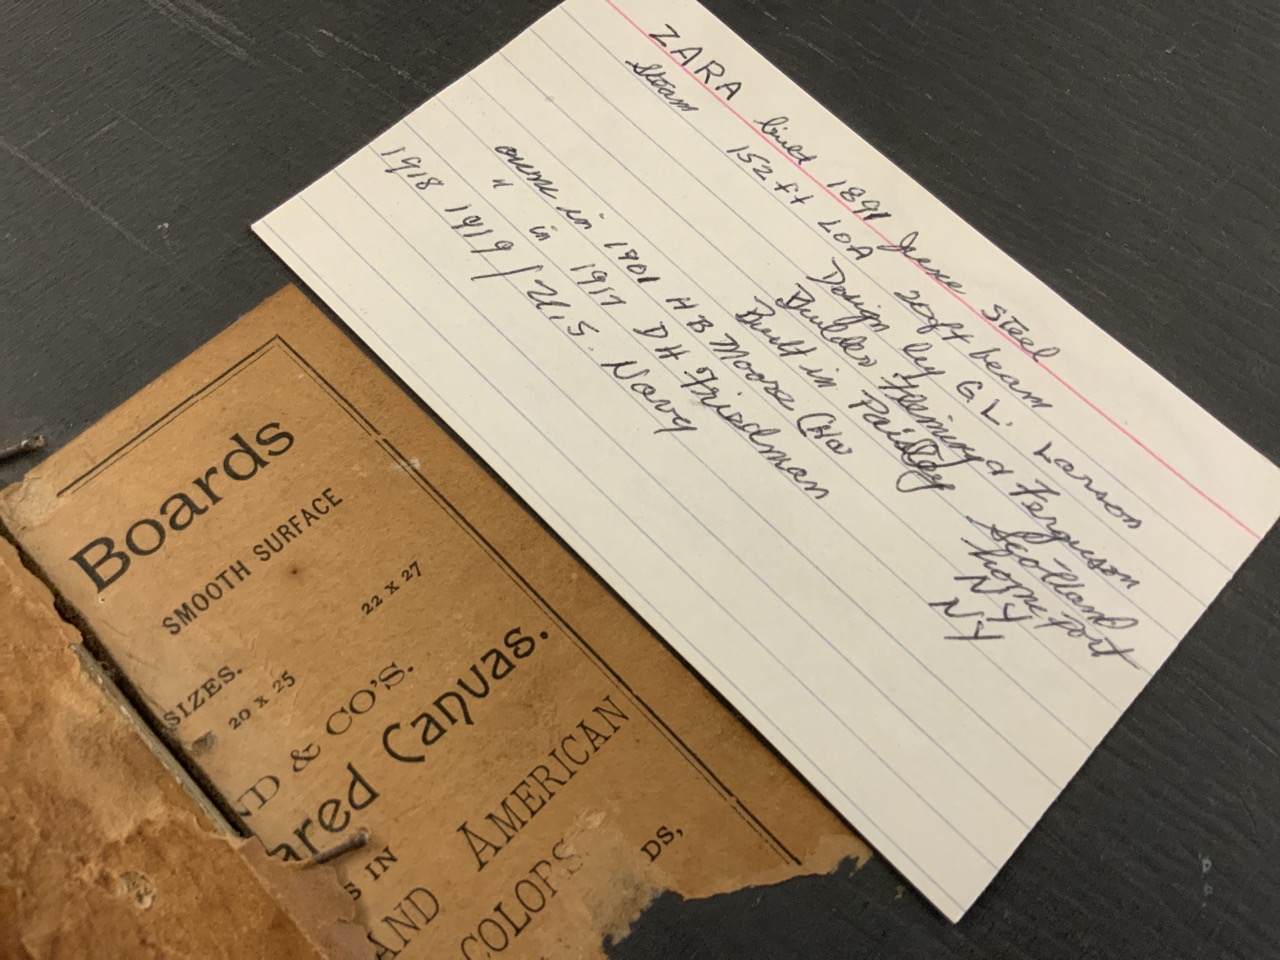 ZARA built 1891 June Steel
Steam 152 ft LOA 20ft beam
Design by G L. Larson
Builder Fleming & Ferguson
Built in Paisley Scotland
home port
owner in 1901 H B Moore NY
" in 1917 D H Friedman NY
1918 1919 / U.S. Navy
Boards
SMOOTH SURFACE
SIZES.
20 X 25 22 X 27
ND & CO'S.
ared Canvas.
S IN
AND AMERICAN
COLORS
DS,